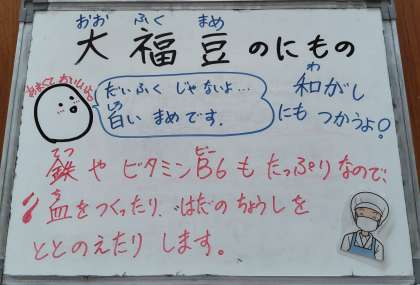 おお ふく まめ
大福豆のにもの
あまくておいしいよ
だいふく じゃないよ…
しろ
白い まめです。
わ
和がし
にも つかうよ!
てつ ビー
鉄や ビタミンB6も たっぷりなので、
ち
血をつくったり、はだのちょうしを
ととのえたり します。